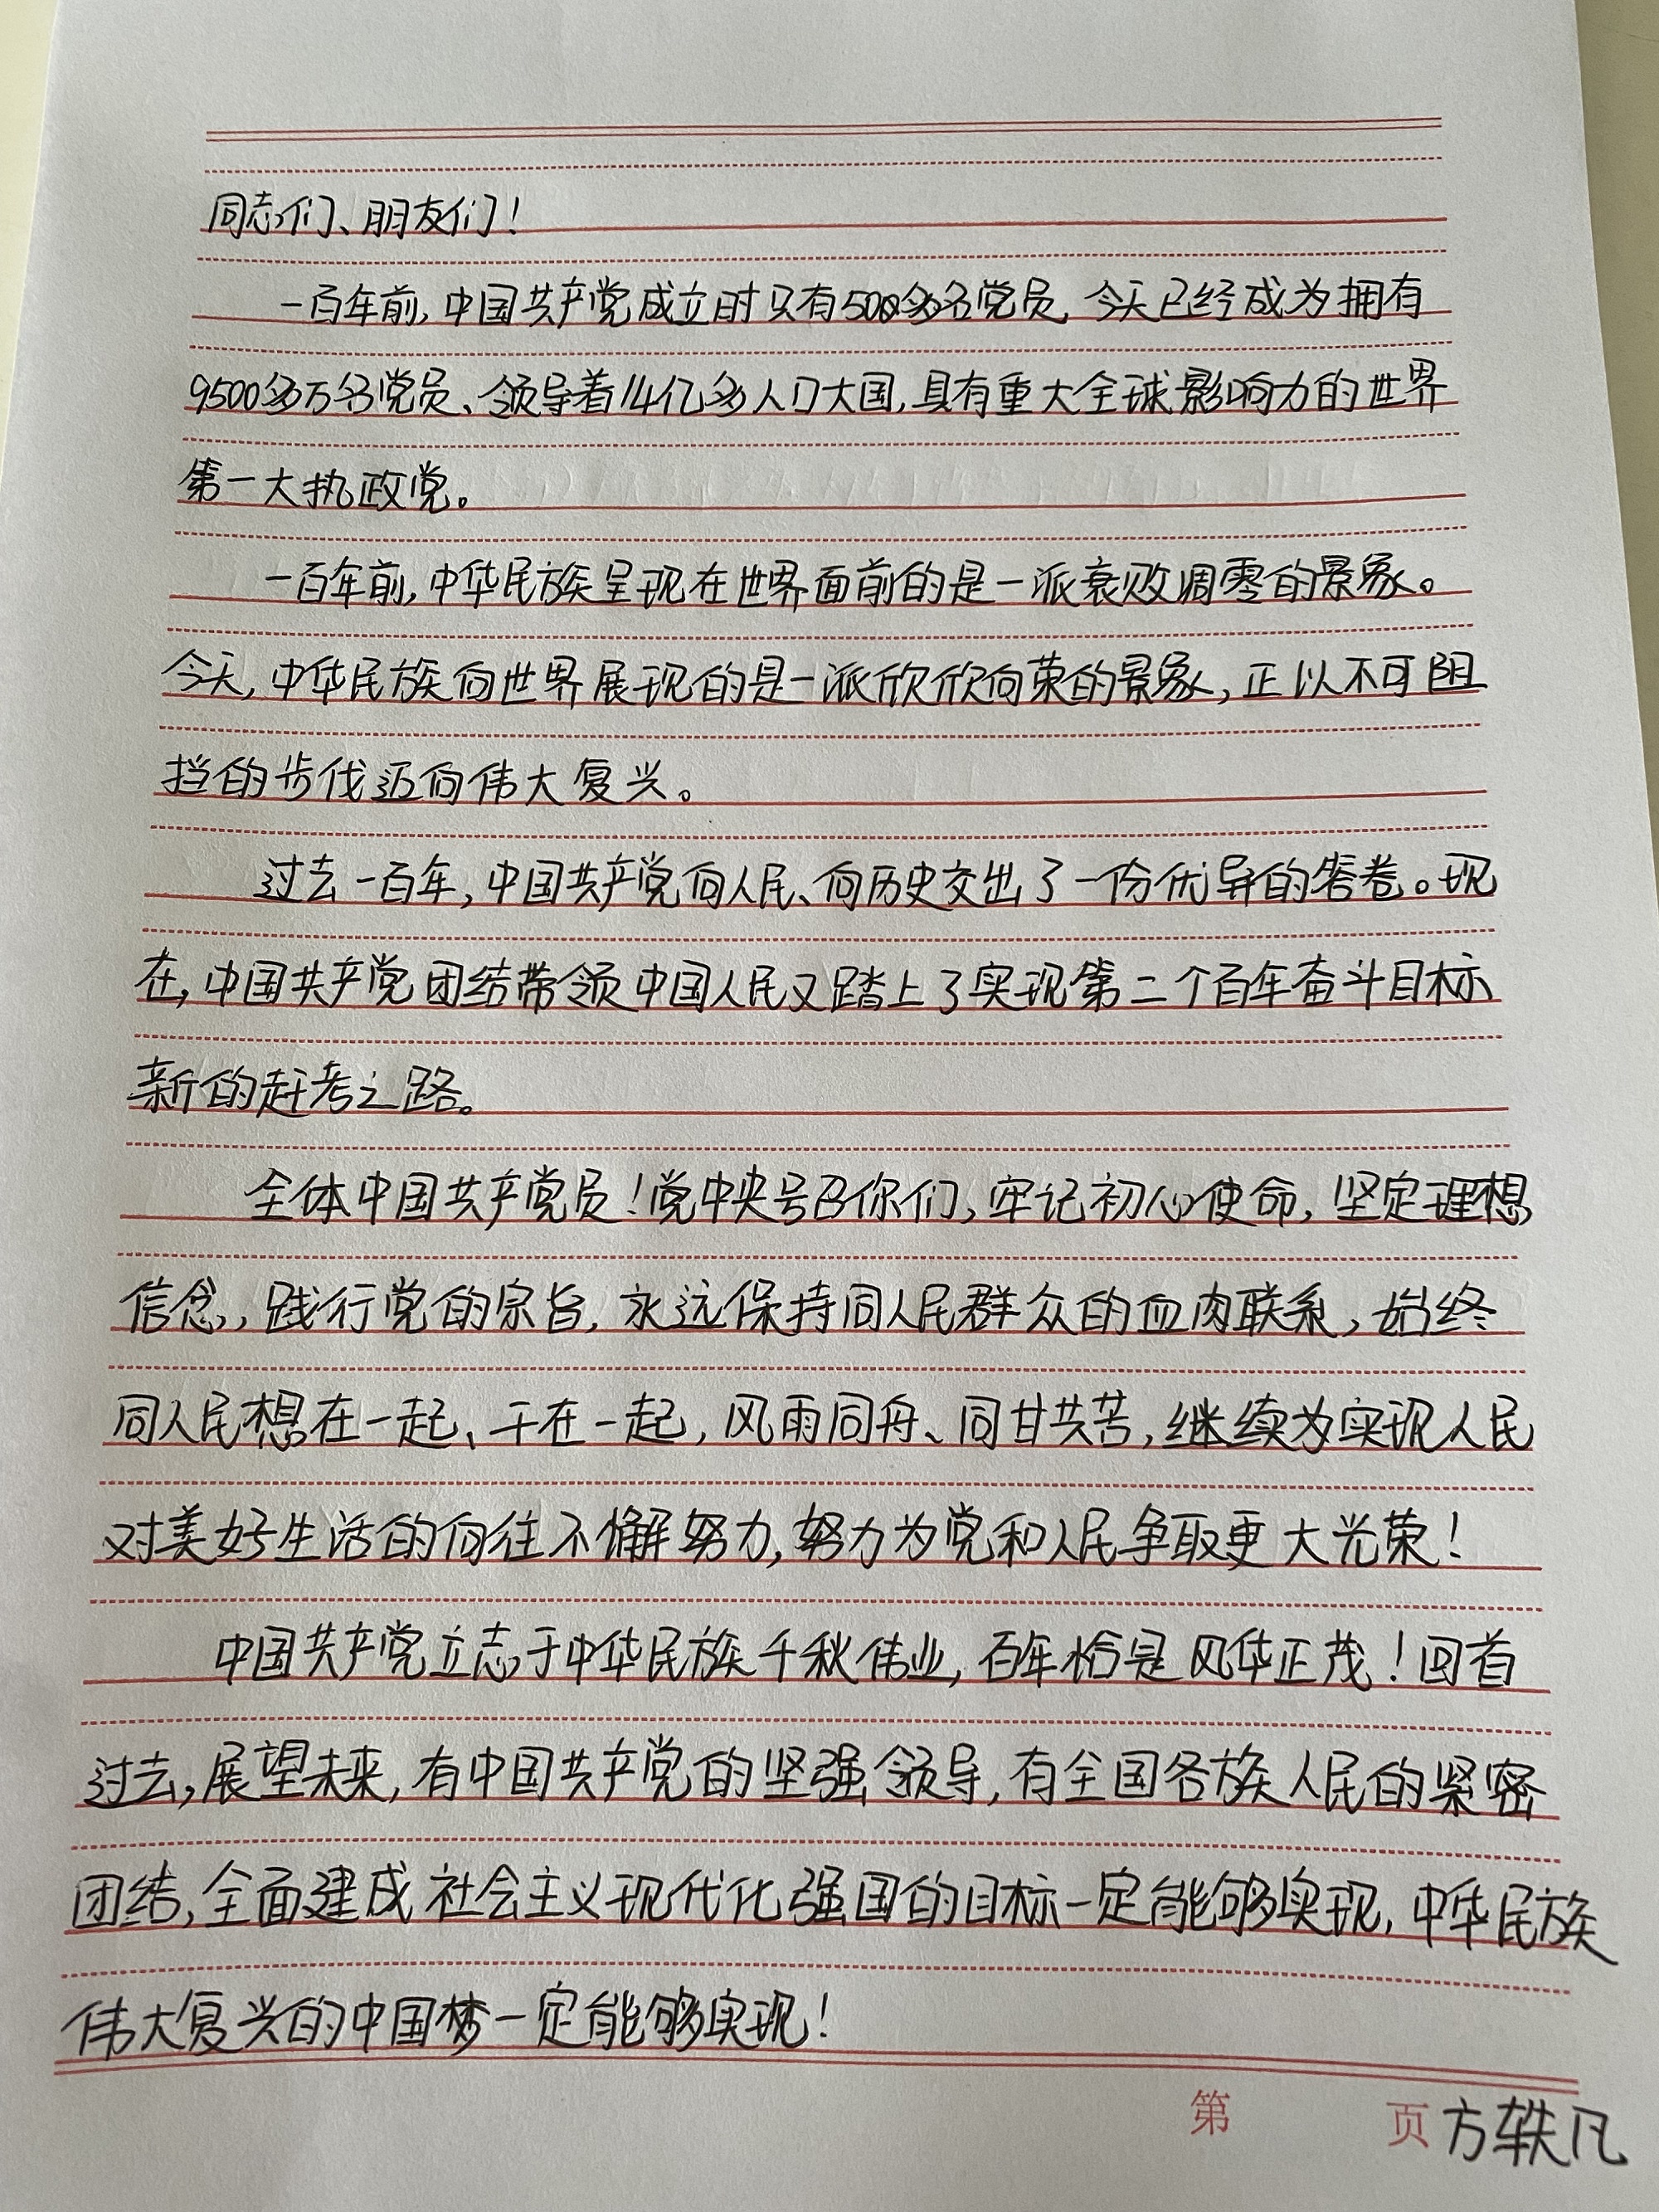 同志们、朋友们！
一百年前，中国共产党成立时只有50多名党员，今天已经成为拥有
9500多万名党员、领导着14亿多人口大国，具有重大全球影响力的世界
第一大执政党。
一百年前，中华民族呈现在世界面前的是一派衰败凋零的景象。
今天，中华民族向世界展现的是一派欣欣向荣的景象，正以不可阻
挡的步伐迈向伟大复兴。
过去一百年，中国共产党向人民、向历史交出了一份优异的答卷。现
在，中国共产党团结带领中国人民又踏上了实现第二个百年奋斗目标
新的赶考之路。
全体中国共产党员！党中央号召你们，牢记初心使命，坚定理想
信念，践行党的宗旨，永远保持同人民群众的血肉联系，始终
同人民想在一起、干在一起，风雨同舟、同甘共苦，继续为实现人民
对美好生活的向往不懈努力，努力为党和人民争取更大光荣！
中国共产党立志于中华民族千秋伟业，百年恰是风华正茂！回首
过去，展望未来，有中国共产党的坚强领导，有全国各族人民的紧密
团结，全面建成社会主义现代化强国的目标一定能够实现，中华民族
伟大复兴的中国梦一定能够实现！
第 页 方轶凡